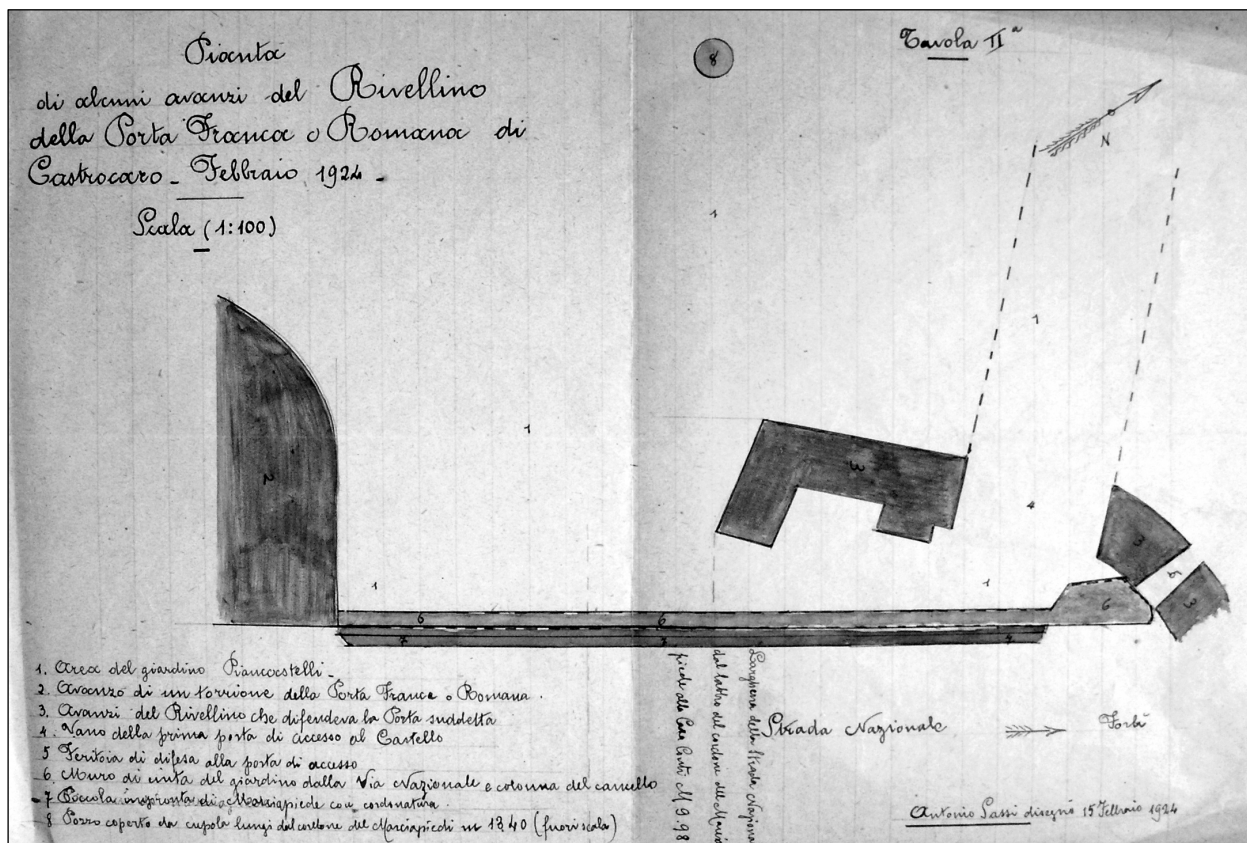 Pianta
di alcuni avanzi del Rivellino
della Porta Franca o Romana di
Castrocaro - Febbraio 1924 -
Scala (1:100)
8
Tavola IIª
N
1
1
1
2
3
4
3
5
3
1
1
6
6
6
7
7
7
1. Area del giardino Piancastelli -
2. Avanzo di un torrione della Porta Franca o Romana.
3. Avanzi del Rivellino che difendeva la Porta suddetta
4. Vano della prima porta di accesso al Castello
5 Feritoia di difesa alla porta di accesso
6. Muro di cinta del giardino dalla Via Nazionale e colonna del cancello
7 Piccola impronta di Marciapiede con cordonatura.
8 Pozzo coperto da cupola lungi dal cordone del Marciapiedi m 13,40 (fuori scala)
Larghezza della Strada Nazionale
dal labbro del cordone del Marcia
piede alla Casa Conti M 9.98
Strada Nazionale
Forlì
Antonio Tassi disegnò 15 Febbraio 1924